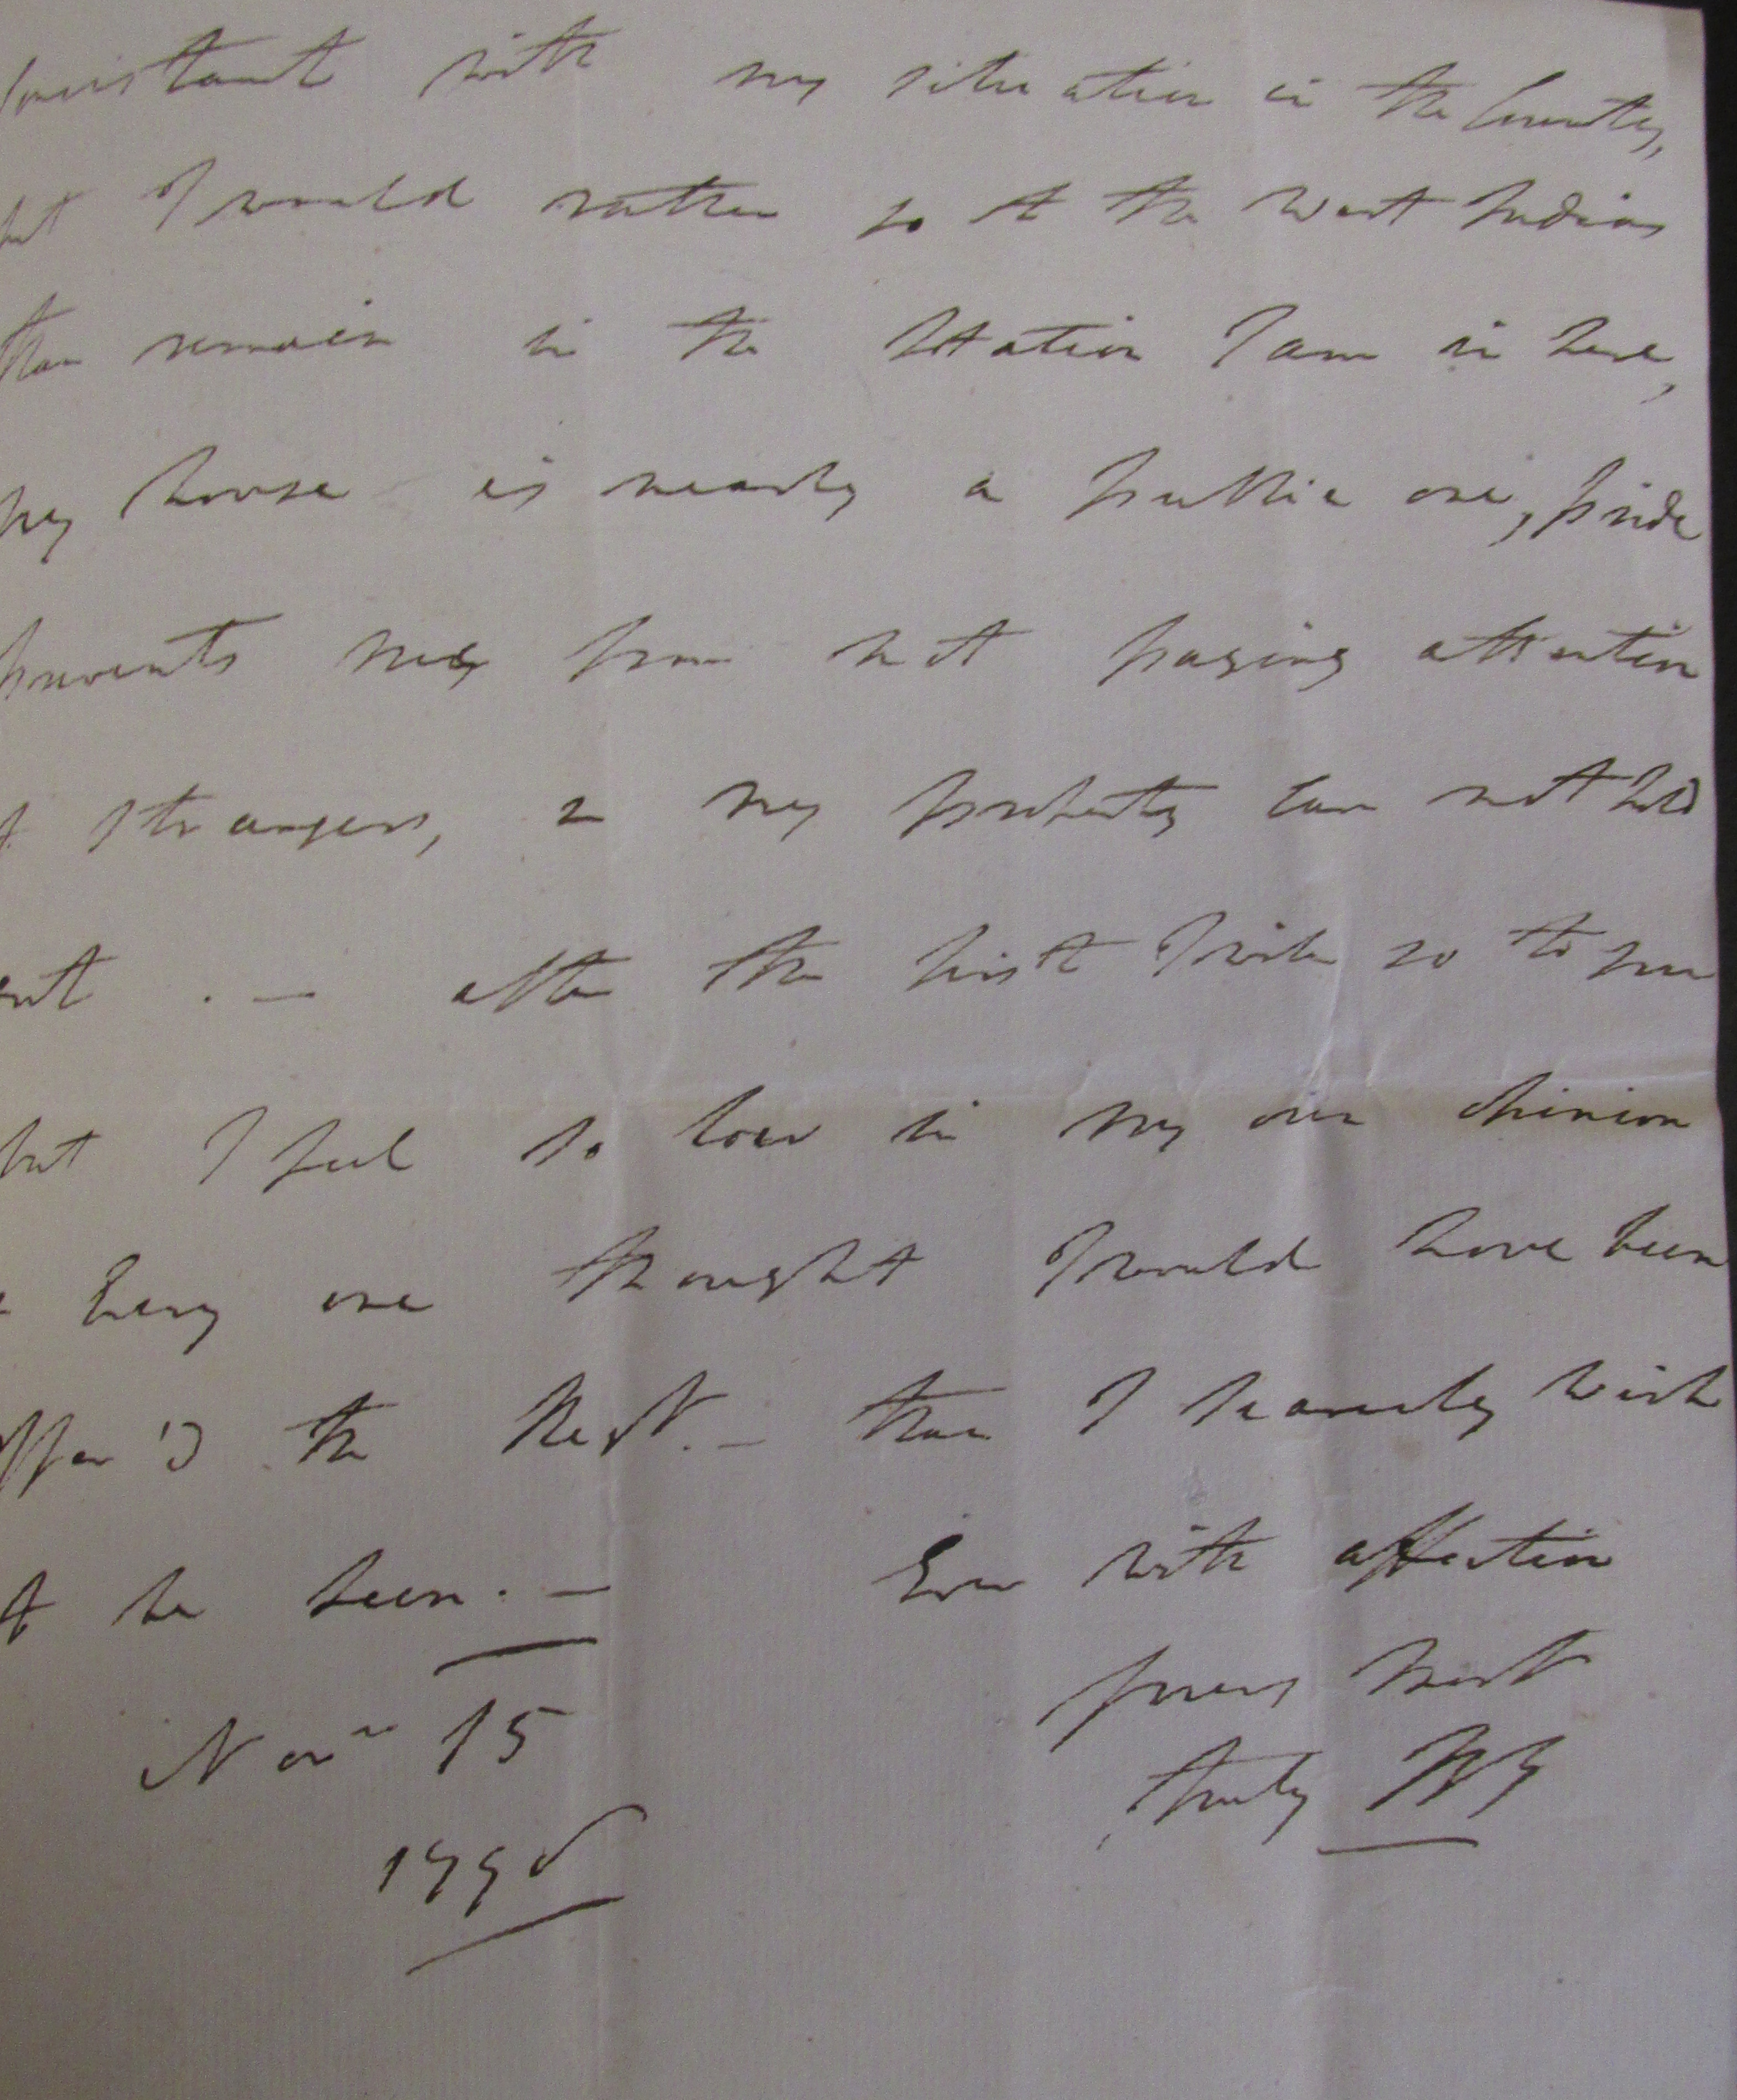 Consistant with my situation in the County,
but I would rather go to the West Indies
than remain in the Station I am in here,
my house is nearly a publie one, pride
prevents me from not paying attention
to strangers, & my property can not hold
out . — after the first I wish not to
but I feel so low in my own opinion
& Every one thought I would have been
offer'd the Regt. — than I scarcely wish
to be seen . — Ever with affection
yours most
Novr 15 truly
1796